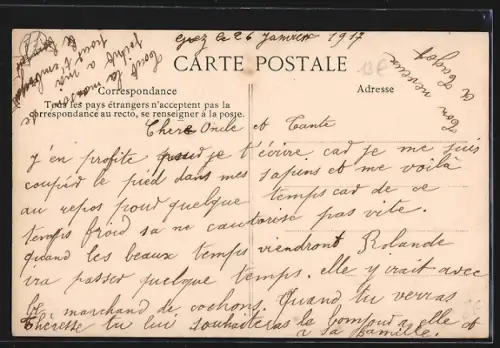 Grez le 26 Janvier 1917
CARTE POSTALE
Correspondance
Adresse
Tous les pays étrangers n'acceptent pas la
correspondance au recto, se renseigner à la poste.
Chère Oncle et Tante
J'en profite pour je t'écrire car je me suis
coupér le pied dans mes sapins et me voilà
au repos pour quelque temps car de ce
temps froid sa ne cautorise pas vite.
quand les beaux temps viendront Rolande
ira passer quelque temps. elle y irait avec
le marchand de cochons. Quand tu verras
Theresse tu lui souhaiteras le bonjour a elle et
a sa famille.
Toute la maison
se joint a moi
pour t'embrasser
Ton neveu